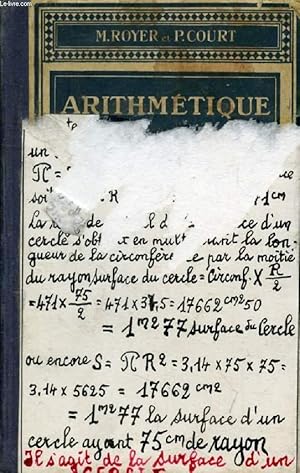 Le-livre.com
M. ROYER et P. COURT
ARITHMÉTIQUE
un
π =
soit R 1cm
La de d'un
cercle s'obt en mult ant la lon-
gueur de la circonfér ce par la moitié
du rayon, surface du cercle = Circonf. X R/2
= 471 x 75/2 = 471 x 37,5 = 17662 cm2 50
= 1 m2 77 surface du Cercle
ou encore S = π R2 = 3,14 x 75 x 75 =
3,14 x 5625 = 17662 cm2
= 1 m2 77 la surface d'un
cercle ayant 75 cm de rayon
Il s'agit de la surface d'un